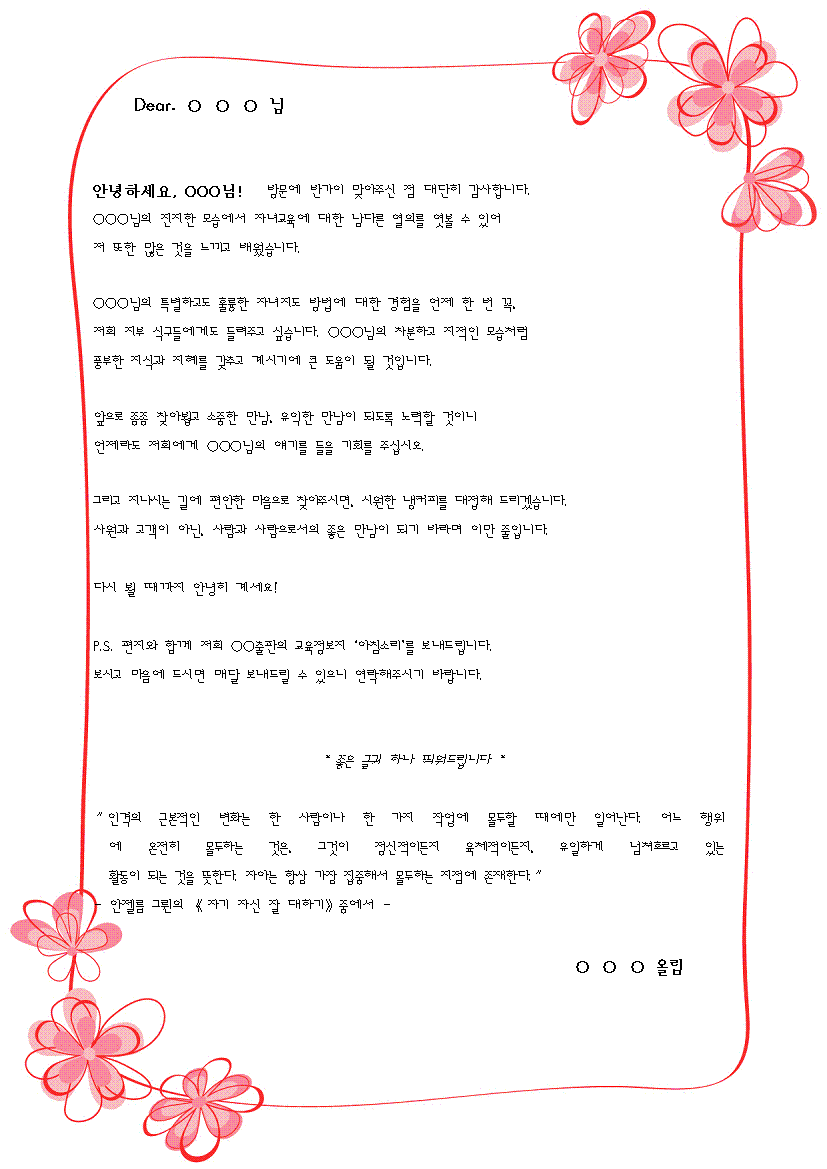 Dear. ○ ○ ○ 님
안녕하세요, ○○○님! 방문에 반가이 맞아주신 점 대단히 감사합니다.
○○○님의 진지한 모습에서 자녀교육에 대한 남다른 열의를 엿볼 수 있어
저 또한 많은 것을 느끼고 배웠습니다.
○○○님의 특별하고도 훌륭한 자녀지도 방법에 대한 경험을 언제 한 번 꼭,
저희 지부 식구들에게도 들려주고 싶습니다. ○○○님의 차분하고 지적인 모습처럼
풍부한 지식과 지혜를 갖추고 계시기에 큰 도움이 될 것입니다.
앞으로 종종 찾아뵙고 소중한 만남, 유익한 만남이 되도록 노력할 것이니
언제라도 저희에게 ○○○님의 얘기를 들을 기회를 주십시오.
그리고 지나시는 길에 편안한 마음으로 찾아주시면, 시원한 냉커피를 대접해 드리겠습니다.
사원과 고객이 아닌, 사람과 사람으로서의 좋은 만남이 되기 바라며 이만 줄입니다.
다시 뵐 때까지 안녕히 계세요!
P.S. 편지와 함께 저희 ○○출판의 교육정보지 '아침소리'를 보내드립니다.
보시고 마음에 드시면 매달 보내드릴 수 있으니 연락해주시기 바랍니다.
* 좋은 글귀 하나 띄워드립니다 *
" 인격의 근본적인 변화는 한 사람이나 한 가지 작업에 몰두할 때에만 일어난다. 어느 행위
에 온전히 몰두하는 것은, 그것이 정신적이든지 육체적이든지, 유일하게 넘쳐흐르고 있는
활동이 되는 것을 뜻한다. 자아는 항상 가장 집중해서 몰두하는 지점에 존재한다."
- 안젤름 그륀의 《 자기 자신 잘 대하기》중에서 -
○ ○ ○ 올림